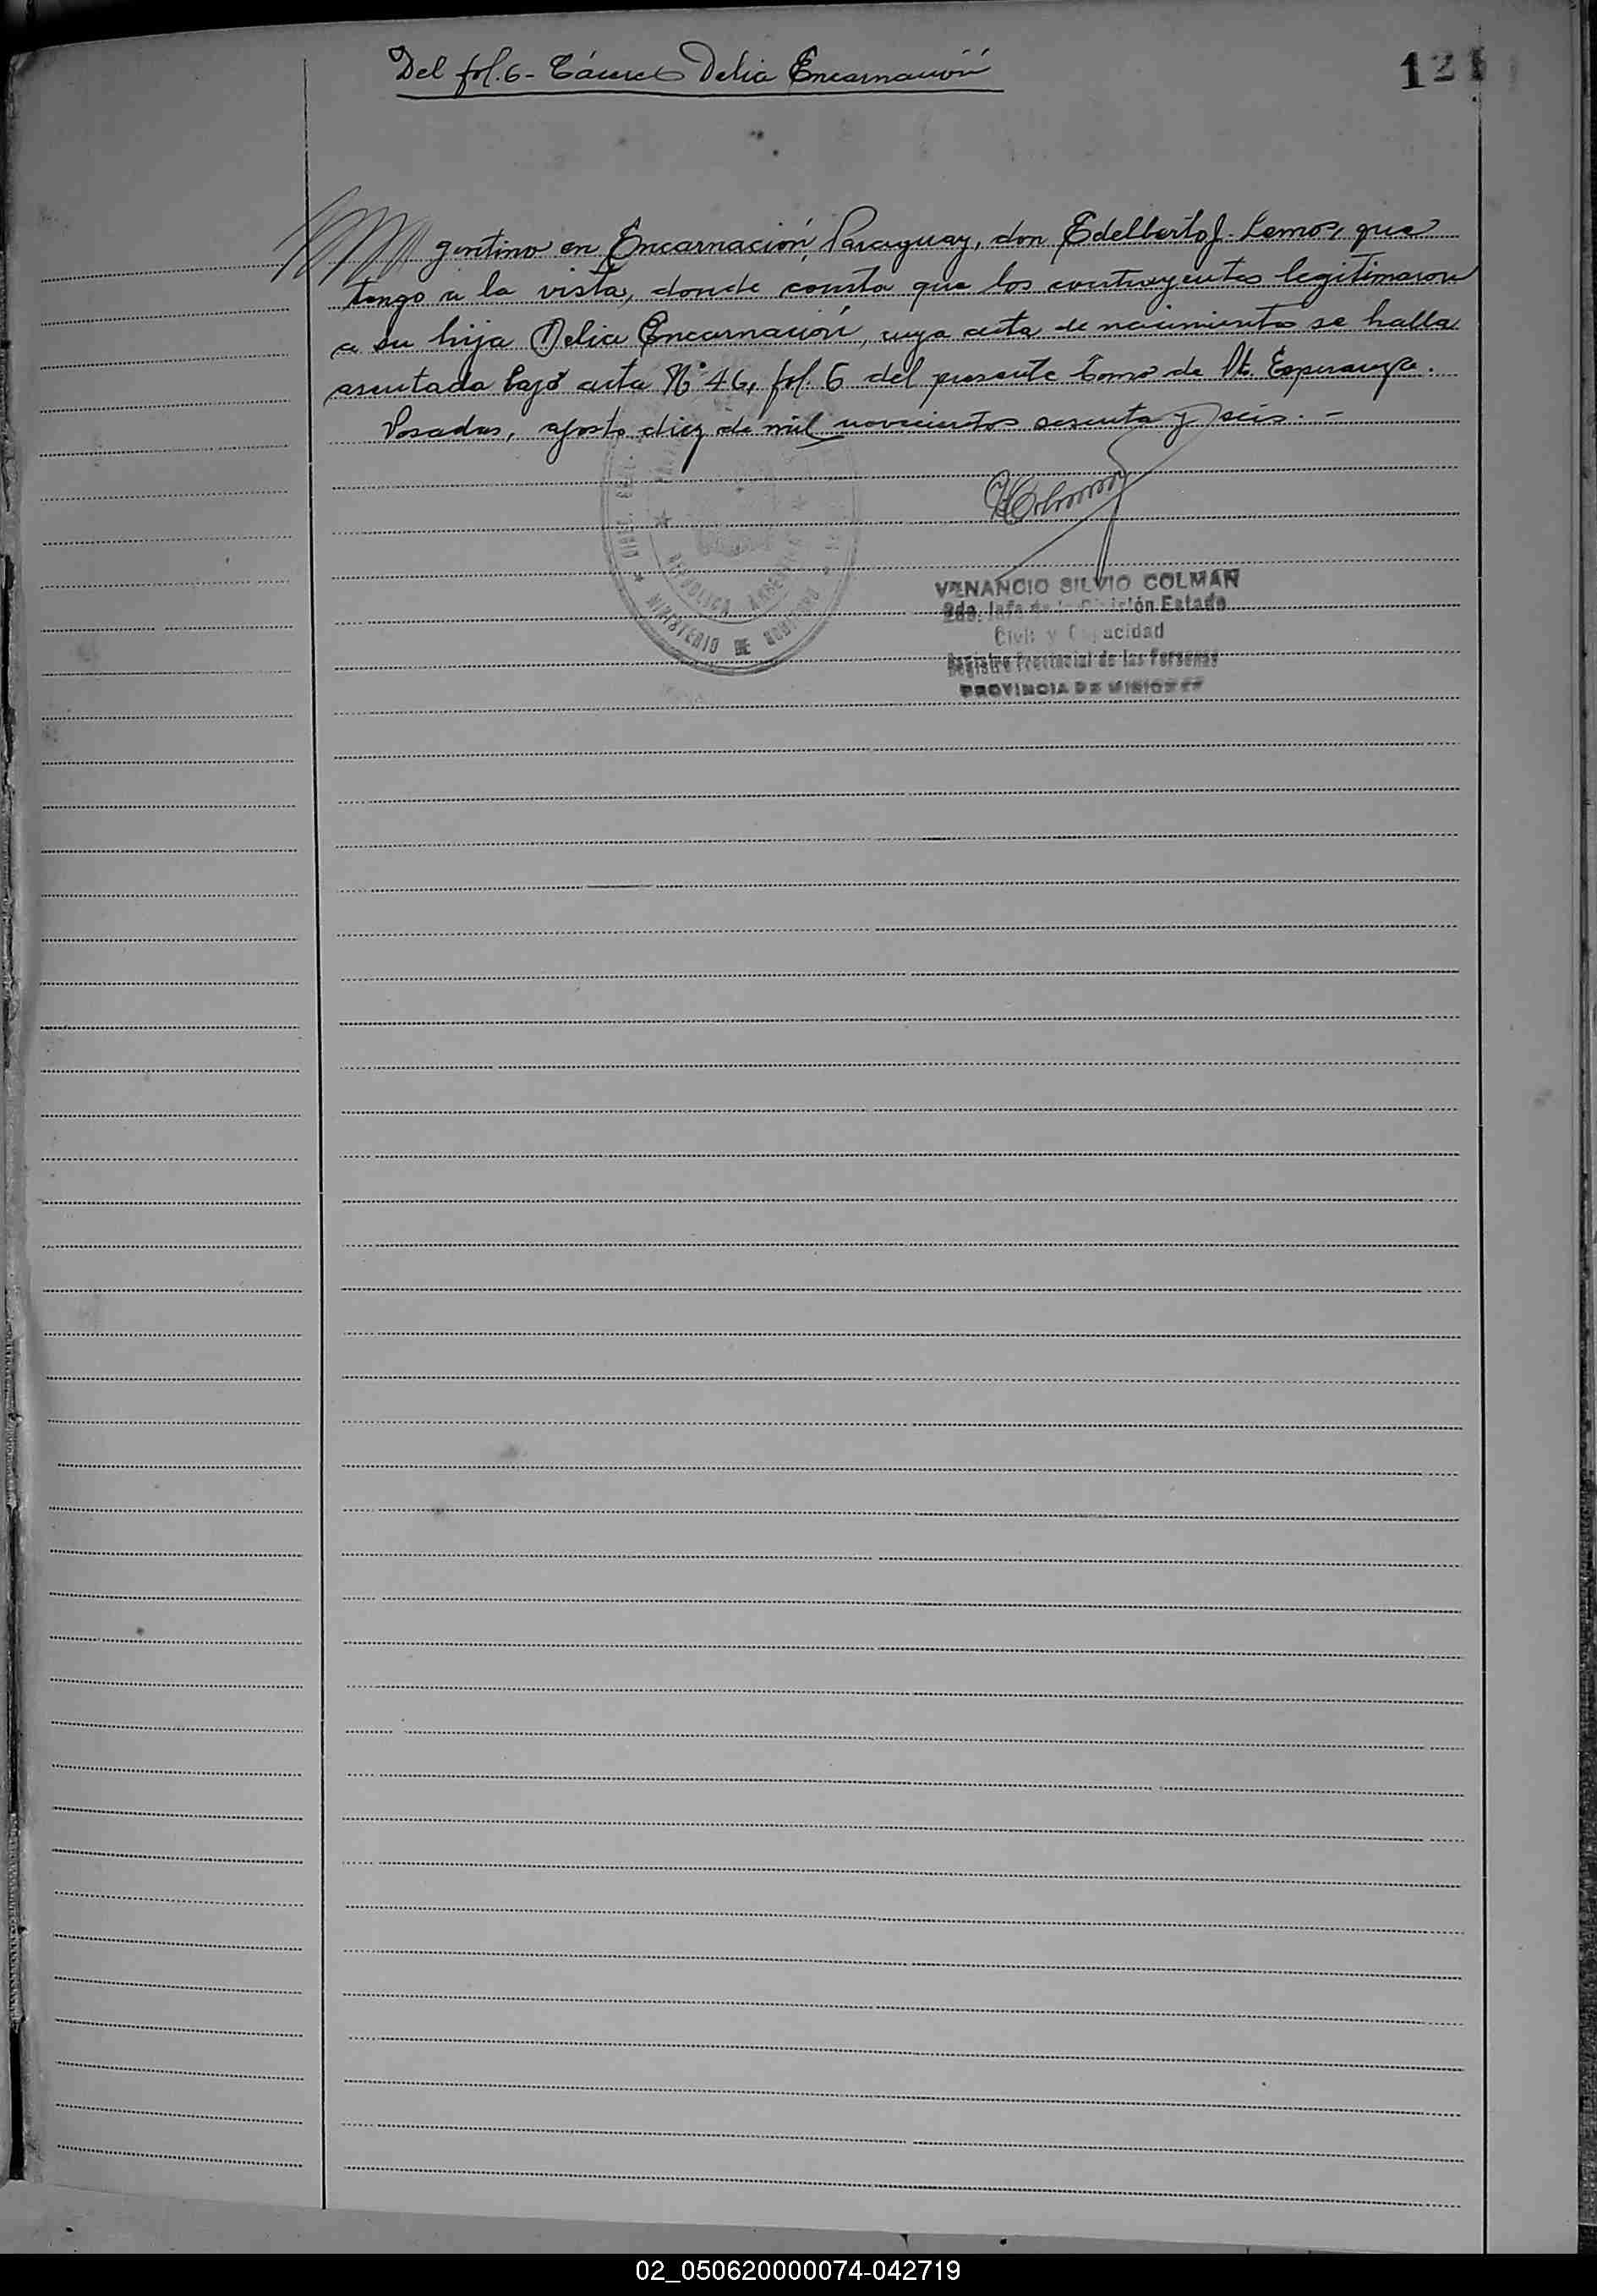 Del fol. 6 - Cáceres Delia Encarnación
121
gentino en Encarnación, Paraguay, don Edelberto J. Lemos, que
tengo a la vista, donde consta que los contrayentes legitimaron
a su hija Delia Encarnación, cuya acta de nacimiento se halla
asentada bajo acta N° 46, fol. 6 del presente tomo de Pto. Esperanza.
Posadas, agosto diez de mil novecientos sesenta y seis. -
VENANCIO SILVIO COLMAN
2do. Jefe de la División Estado
Civil y Capacidad
Registro Provincial de las Personas
PROVINCIA DE MISIONES
REPUBLICA ARGENTINA
MINISTERIO DE GOBIERNO
02_050620000074-042719